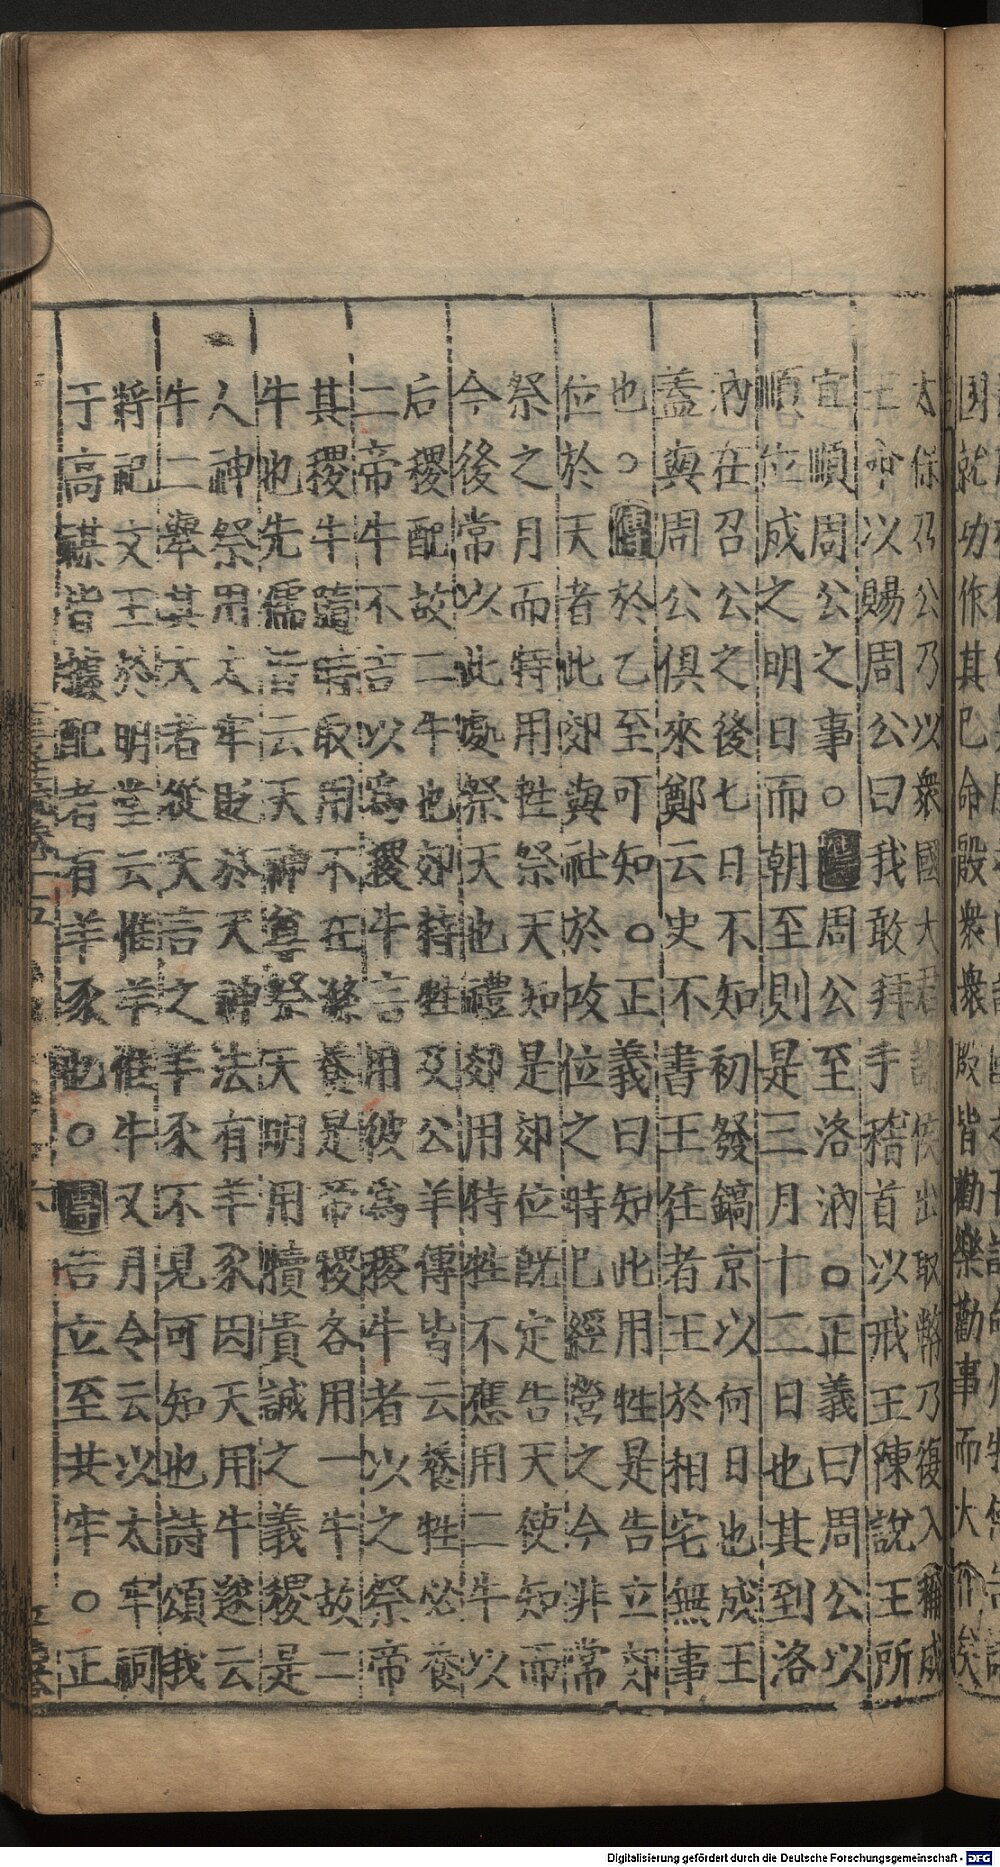 太保召公乃以衆國大君諸侯出取幣乃復入稱成
王命以賜周公曰我敢拜手稽首以戒王陳說王所
宜順周公之事○傳周公至洛汭○正義曰周公以
順位成之明日而朝至則是三月十二日也其到洛
汭在召公之後七日不知初發鎬京以何日也成王
蓋與周公俱來鄭云史不書王往者王於相宅無事
也○傳於乙至可知○正義曰知此用牲是告立郊
位於天者此郊與社於攻位之時已經營之今非常
祭之月而特用牲祭天知是郊位既定告天使知而
今後常以此處祭天也禮郊用特牲不應用二牛以
后稷配故二牛也郊特牲及公羊傳皆云養牲必養
二帝牛不言以為稷牛言用彼為稷牛者以之祭帝
其稷牛隨時取用不在滌養是帝稷各用一牛故二
牛也先儒皆云天神尊祭天明用犢貴誠之義稷是
人神祭用太牢貶於天神法有羊豕因天用牛遂云
牛二舉其大者從天言之羊豕不見可知也詩頌我
將祀文王於明堂云惟羊惟牛又月令云以太牢祠
于高禖皆據配者有羊豕也○傳告立至共牢○正
國就功作其已命殷衆衆殷皆勸樂勸事而大作矣
Digitalisierung gefördert durch die Deutsche Forschungsgemeinschaft - DFG